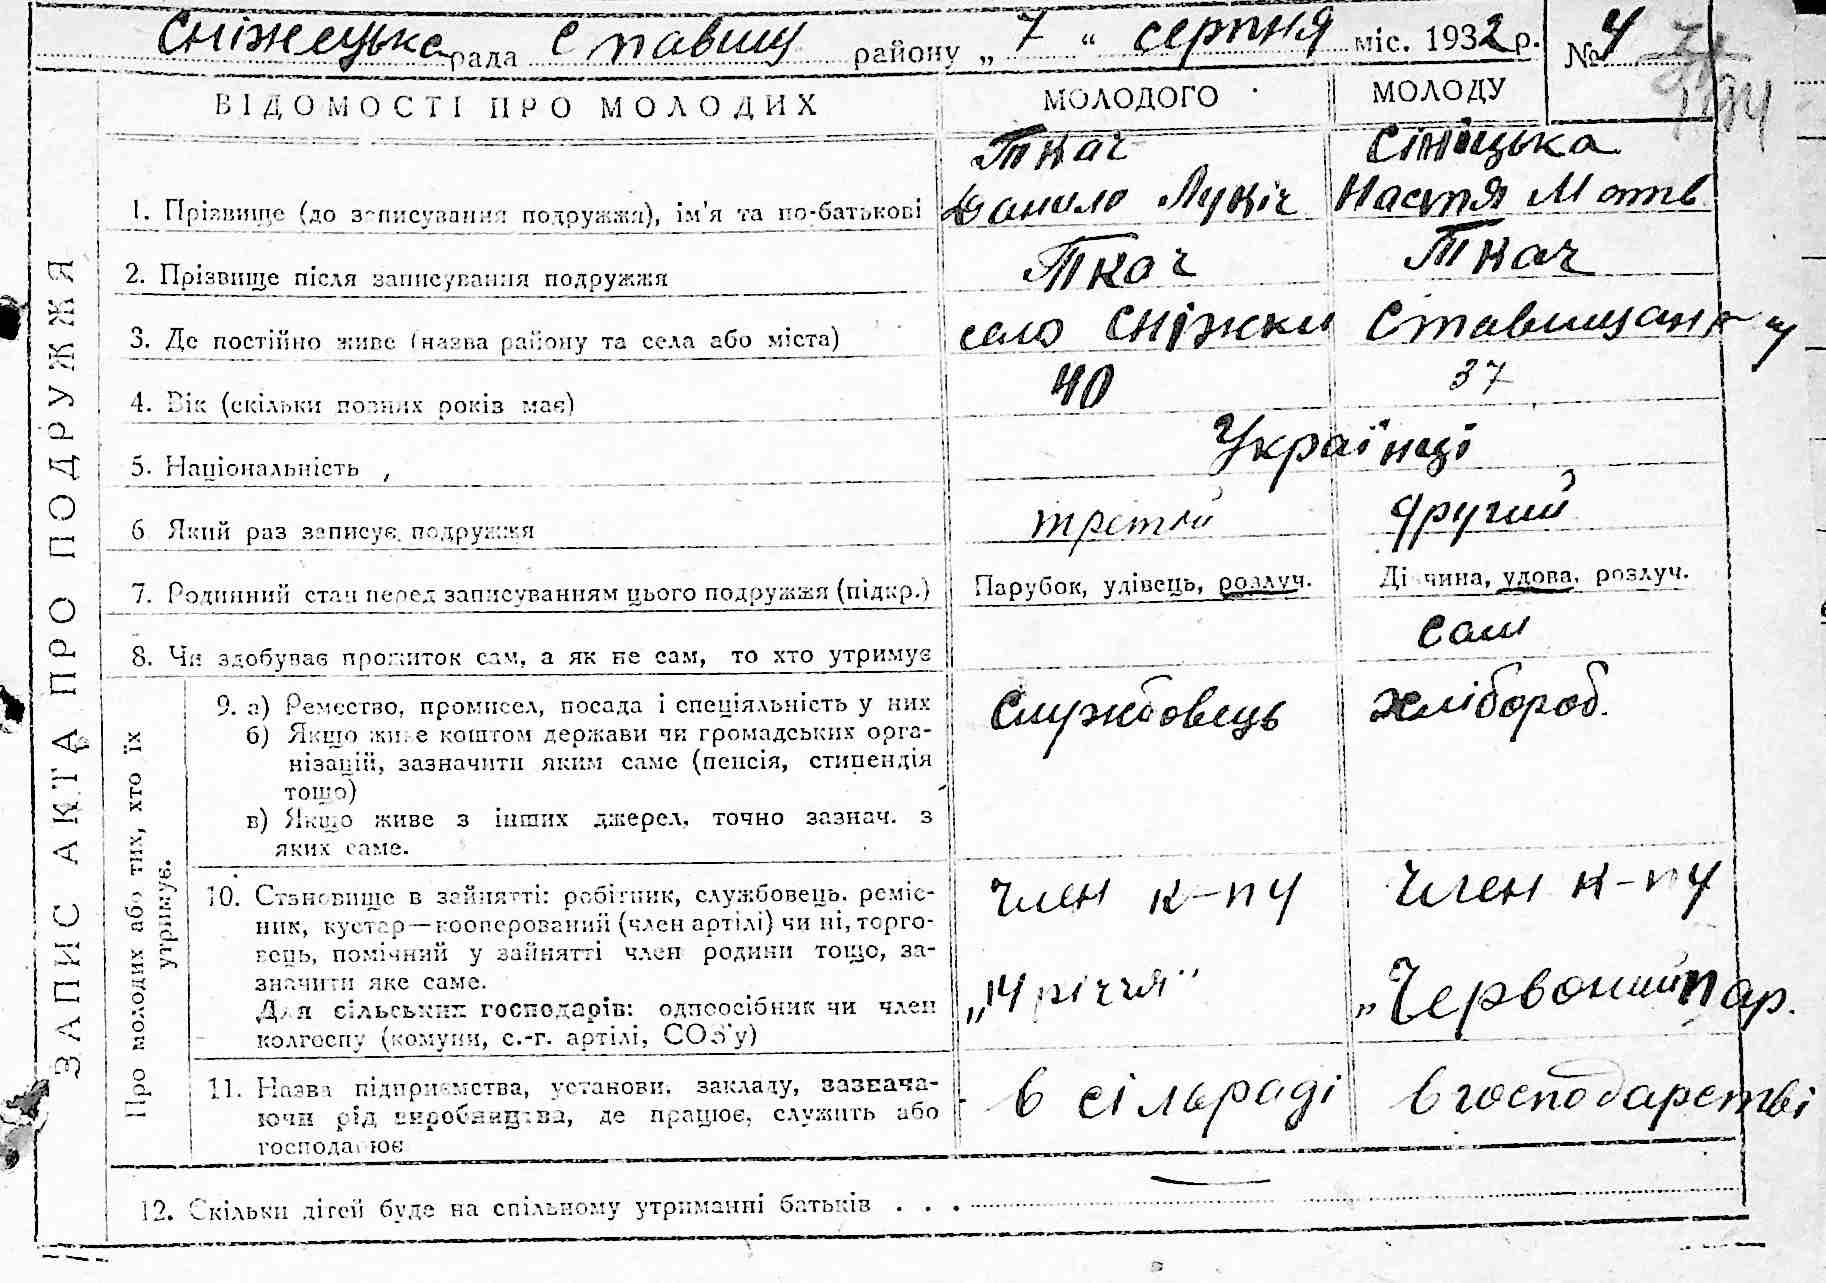 Сніжецька рада Ставищ району „ 7 “ серпня міс. 1932 р. № 4
ВІДОМОСТІ ПРО МОЛОДИХ МОЛОДОГО МОЛОДУ
ЗАПИС АКТА ПРО ПОДРУЖЖЯ
Ткач Сініцька
1. Прізвище (до записування подружжя), ім'я та по-батькові Данило Лукіч Настя Матв
2. Прізвище після записування подружжя Ткач Ткач
3. Де постійно живе (назва району та села або міста) село Сніжки Ставищани
4. Вік (скільки повних років має) 40 37
5. Національність Українці
6 Який раз записує подружжя третій другий
7. Родинний стан перед записуванням цього подружжя (підкр.) Парубок, удівець, розлуч. Дівчина, удова, розлуч.
8. Чи здобуває прожиток сам, а як не сам, то хто утримує сам
Про молодих або тих, хто їх утримує.
9. а) Ремество, промисел, посада і спеціяльність у них службовець хлібороб.
б) Якщо живе коштом держави чи громадських орга-
нізацій, зазначити яким саме (пенсія, стипендія
тощо)
в) Якщо живе з інших джерел, точно зазнач. з
яких саме.
10. Становище в зайнятті: робітник, службовець, реміс- член к-пу член к-пу
ник, кустар—кооперований (член артілі) чи ні, торго-
вець, помічний у зайнятті член родини тощо, за-
значити яке саме. „14 річчя“ „Червоний пар.
Для сільських господарів: одноосібник чи член
колгоспу (комуни, с.-г. артілі, СОЗ'у)
11. Назва підприємства, установи, закладу, зазнача- в сільраді в господарстві
ючи рід виробництва, де працює, служить або
господарює
12. Скільки дітей буде на спільному утриманні батьків . . . —